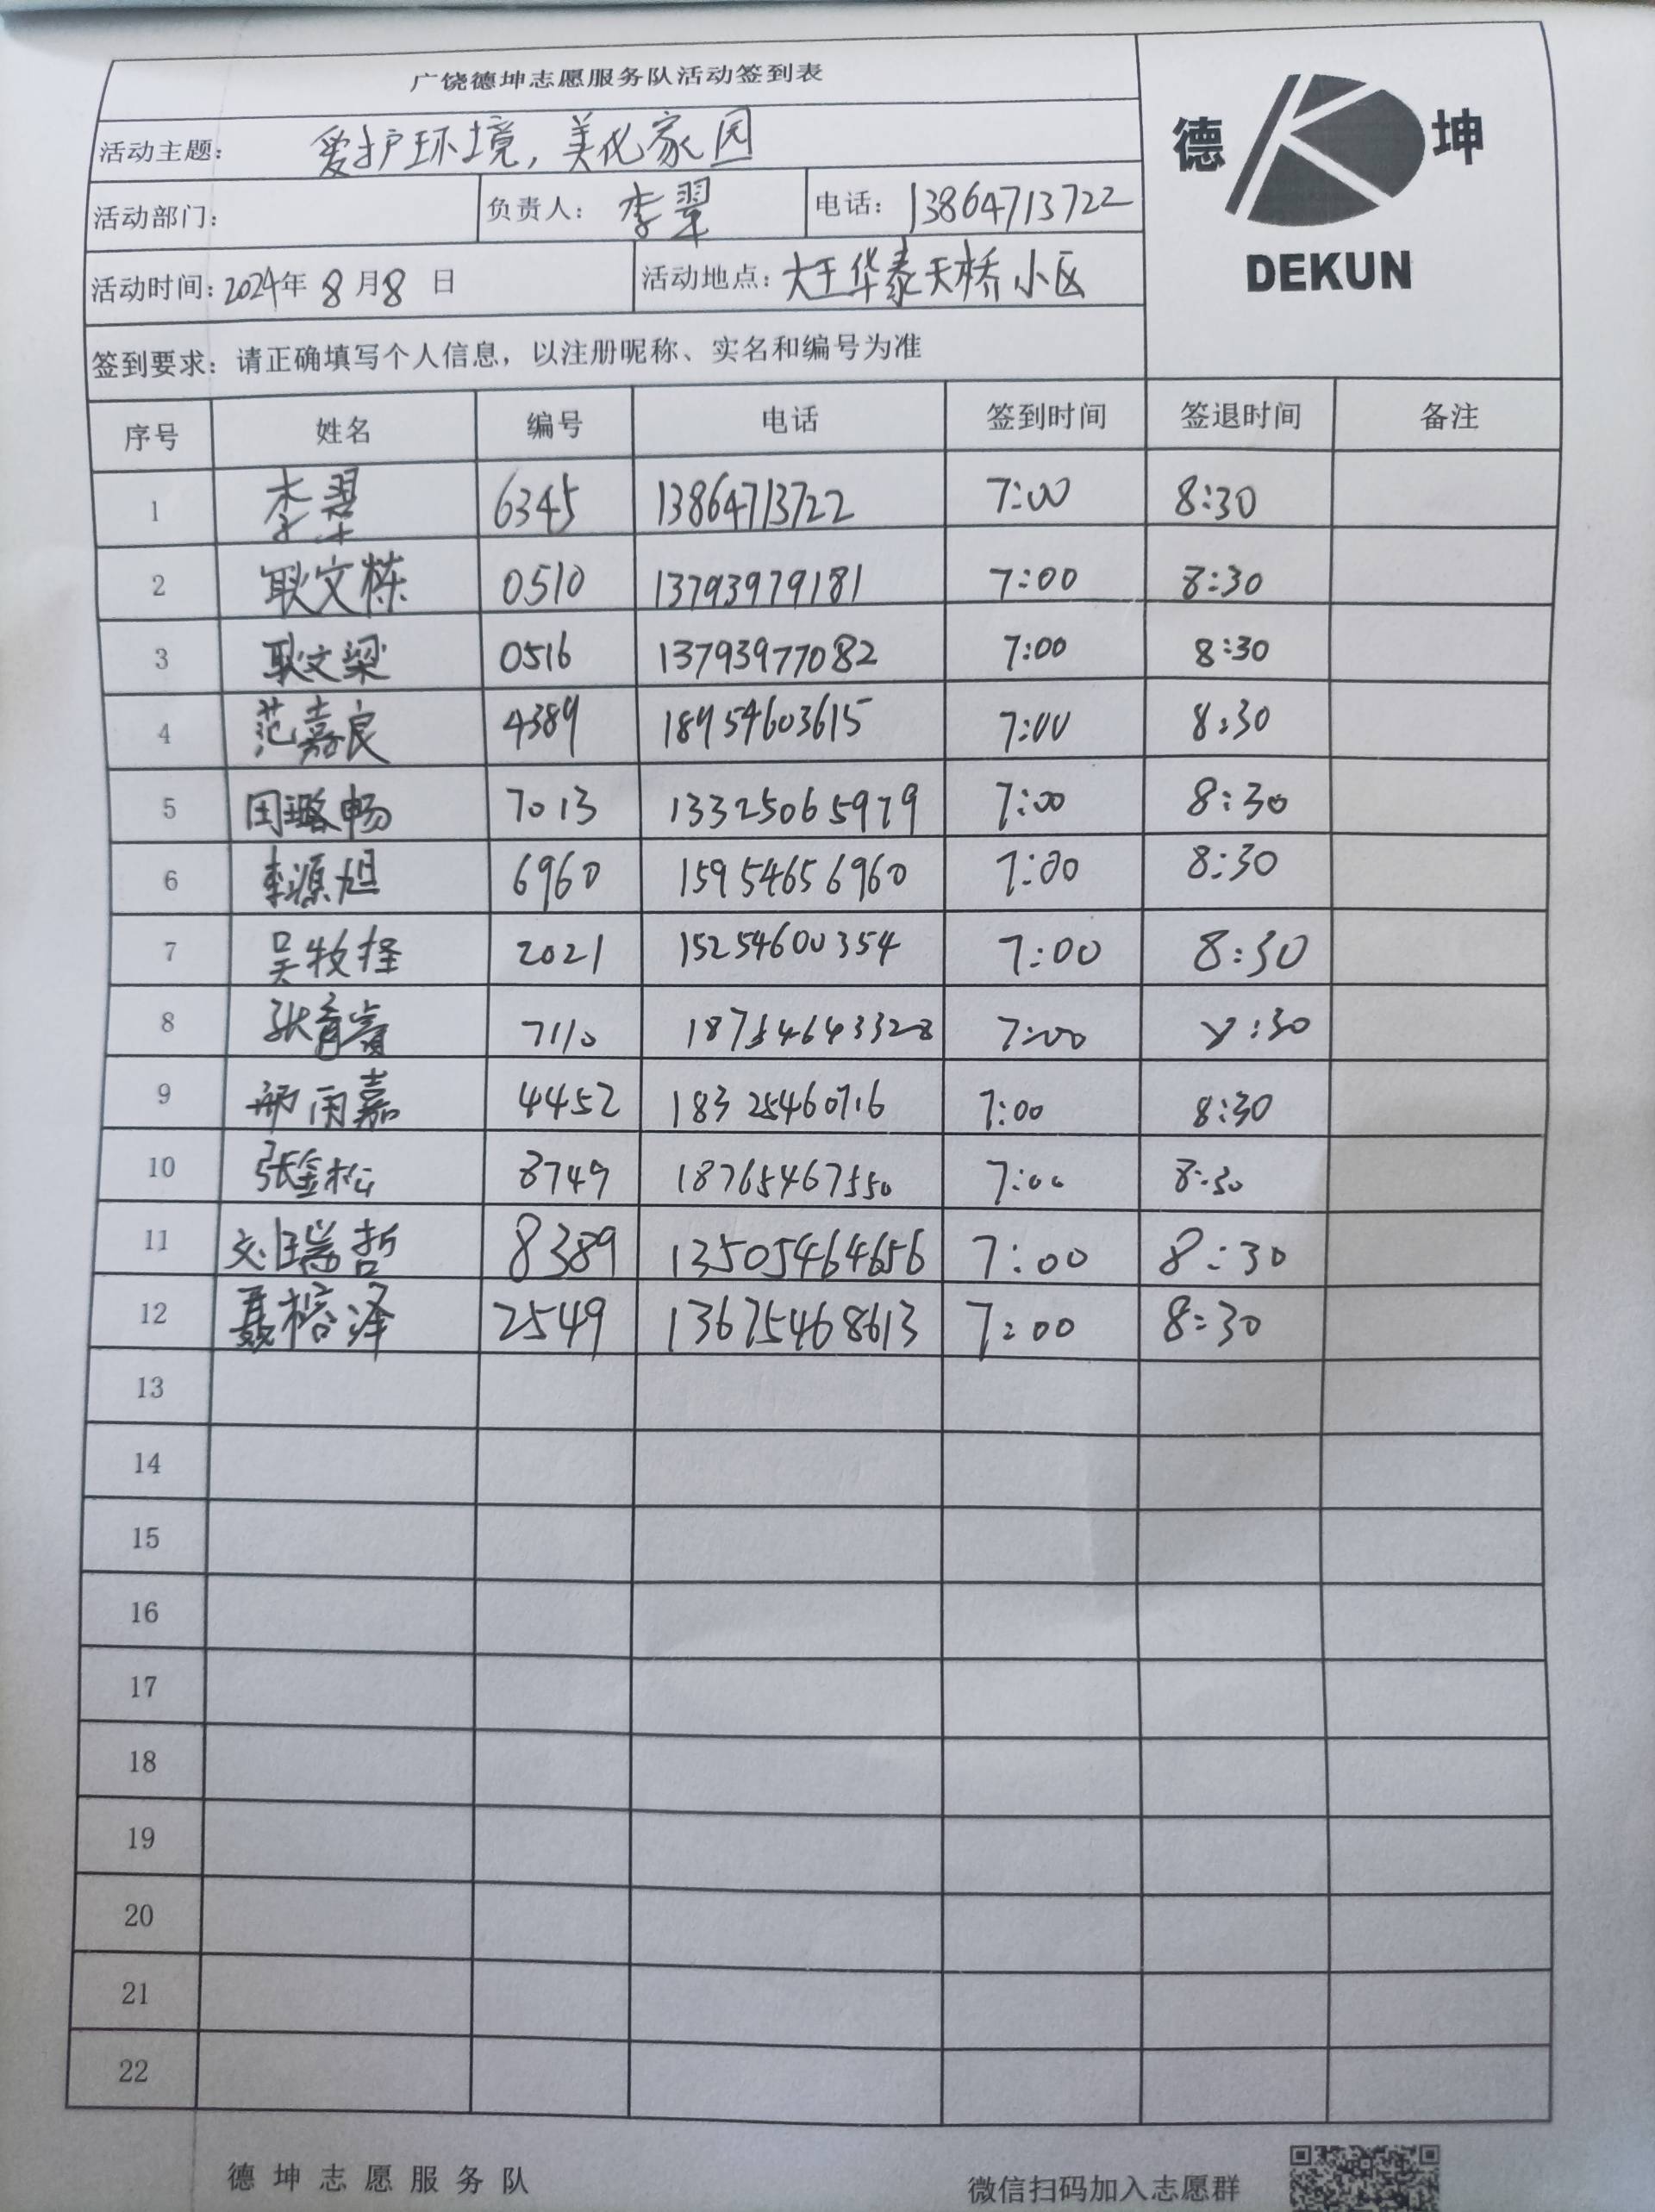 广饶德坤志愿服务队活动签到表
德 坤
DEKUN
活动主题： 爱护环境，美化家园
活动部门： 负责人： 李翠 电话： 13864713722
活动时间：2024年 8 月 8 日 活动地点：大王华泰天桥小区
签到要求：请正确填写个人信息，以注册昵称、实名和编号为准
序号 姓名 编号 电话 签到时间 签退时间 备注
1 李翠 6345 13864713722 7:00 8:30
2 耿文栋 0510 13793979181 7:00 8:30
3 耿文梁 0516 13793977082 7:00 8:30
4 范嘉良 4389 18954603615 7:00 8:30
5 田璐畅 7013 13325065979 7:00 8:30
6 李源旭 6960 15954656960 7:00 8:30
7 吴牧择 2021 15254600354 7:00 8:30
8 7110 18754643328 7:00 8:30
9 雨嘉 4452 18325460716 7:00 8:30
10 张金松 8749 18765467550 7:00 8:30
11 刘瑞哲 8389 13505464656 7:00 8:30
12 聂榕泽 2549 13675468613 7:00 8:30
13
14
15
16
17
18
19
20
21
22
德坤志愿服务队 微信扫码加入志愿群